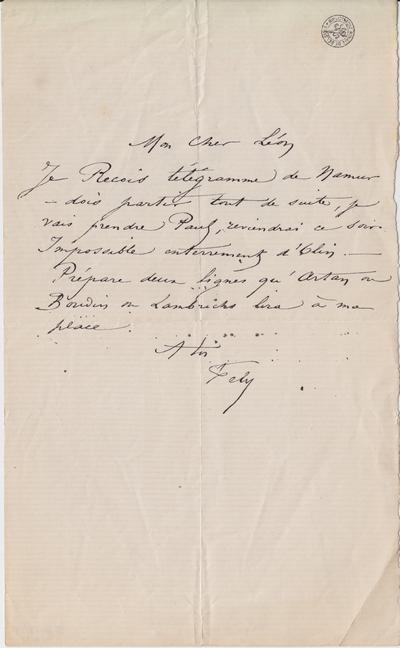 Mon cher Léon
Je Recois télégramme de Namur
– dois partir tout de suite, je
vais prendre Paul, reviendrai ce soir
Impossible enterrement d'Clin. –
Prépare deux lignes qu'Artan ou
Boudin ou Lambrichs lira à ma
place.
A toi
Fely